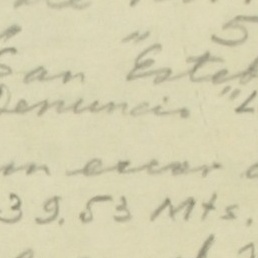 " " 5
San "Esteb
Denuncio "L
un error d
39.53 Mts.